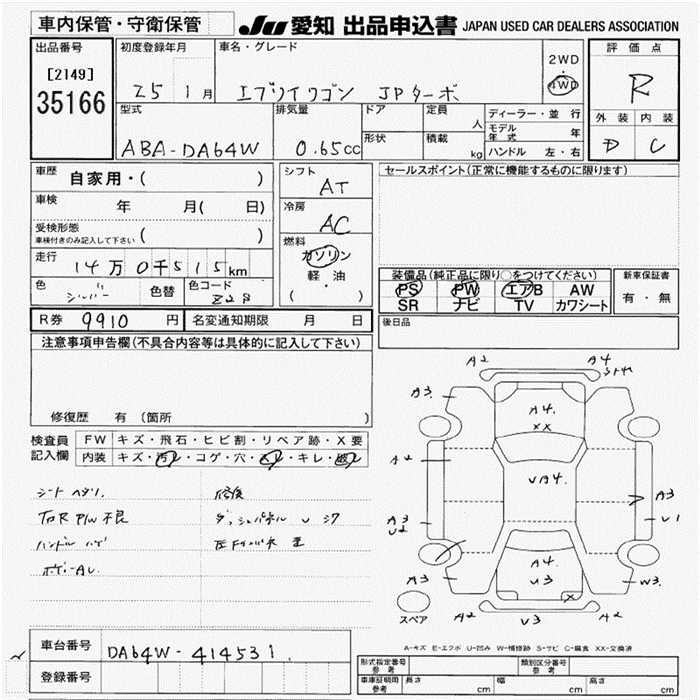 車内保管・守衛保管 JU 愛知 出品申込書 JAPAN USED CAR DEALERS ASSOCIATION
出品番号 初度登録年月 車名・グレード 評価点
[2149] 2WD・4WD
35166 25 1月 エブリイワゴン JPターボ R
型式 排気量 ドア 定員 人 ディーラー・並行 外装 内装
モデル年式 年
ABA-DA64W 0.65cc 形状 積載 kg ハンドル 左・右 D C
車歴 自家用・( ) シフト AT セールスポイント(正常に機能するものに限ります)
車検 年 月( 日) 冷房 AC
受検形態 車検付きのみ記入して下さい ( )
燃料 ガソリン
走行 14万0千515km 軽・油
( )
装備品(純正品に限り○をつけてください) 新車保証書
色 シルバー 色替 色コード Z2S PS PW エアB AW 有・無
SR ナビ TV カワシート
R券 9910円 名変通知期限 月 日 後日品
注意事項申告欄(不具合内容等は具体的に記入して下さい)
修復歴 有(箇所 )
検査員記入欄 FW キズ・飛石・ヒビ割・リペア跡・X要
内装 キズ・汚レ・コゲ・穴・スレ・キレ・破レ
シート ヘタリ 修復
P/W不良
ハンドル ハゲ
A2 A4
A3 A4
XX
A2 UA4
A3 U2 A3 U1
A4
A3 U3 X W3
A2 U3 A2
スペア
A-キズ E-エクボ U-凹み W-補修跡 S-サビ C-腐食 XX-交換済
車台番号 DA64W-414531
登録番号
形式指定番号 参考 類別区分番号 参考
車庫証明用 参考 長さ cm 幅 cm 高さ cm